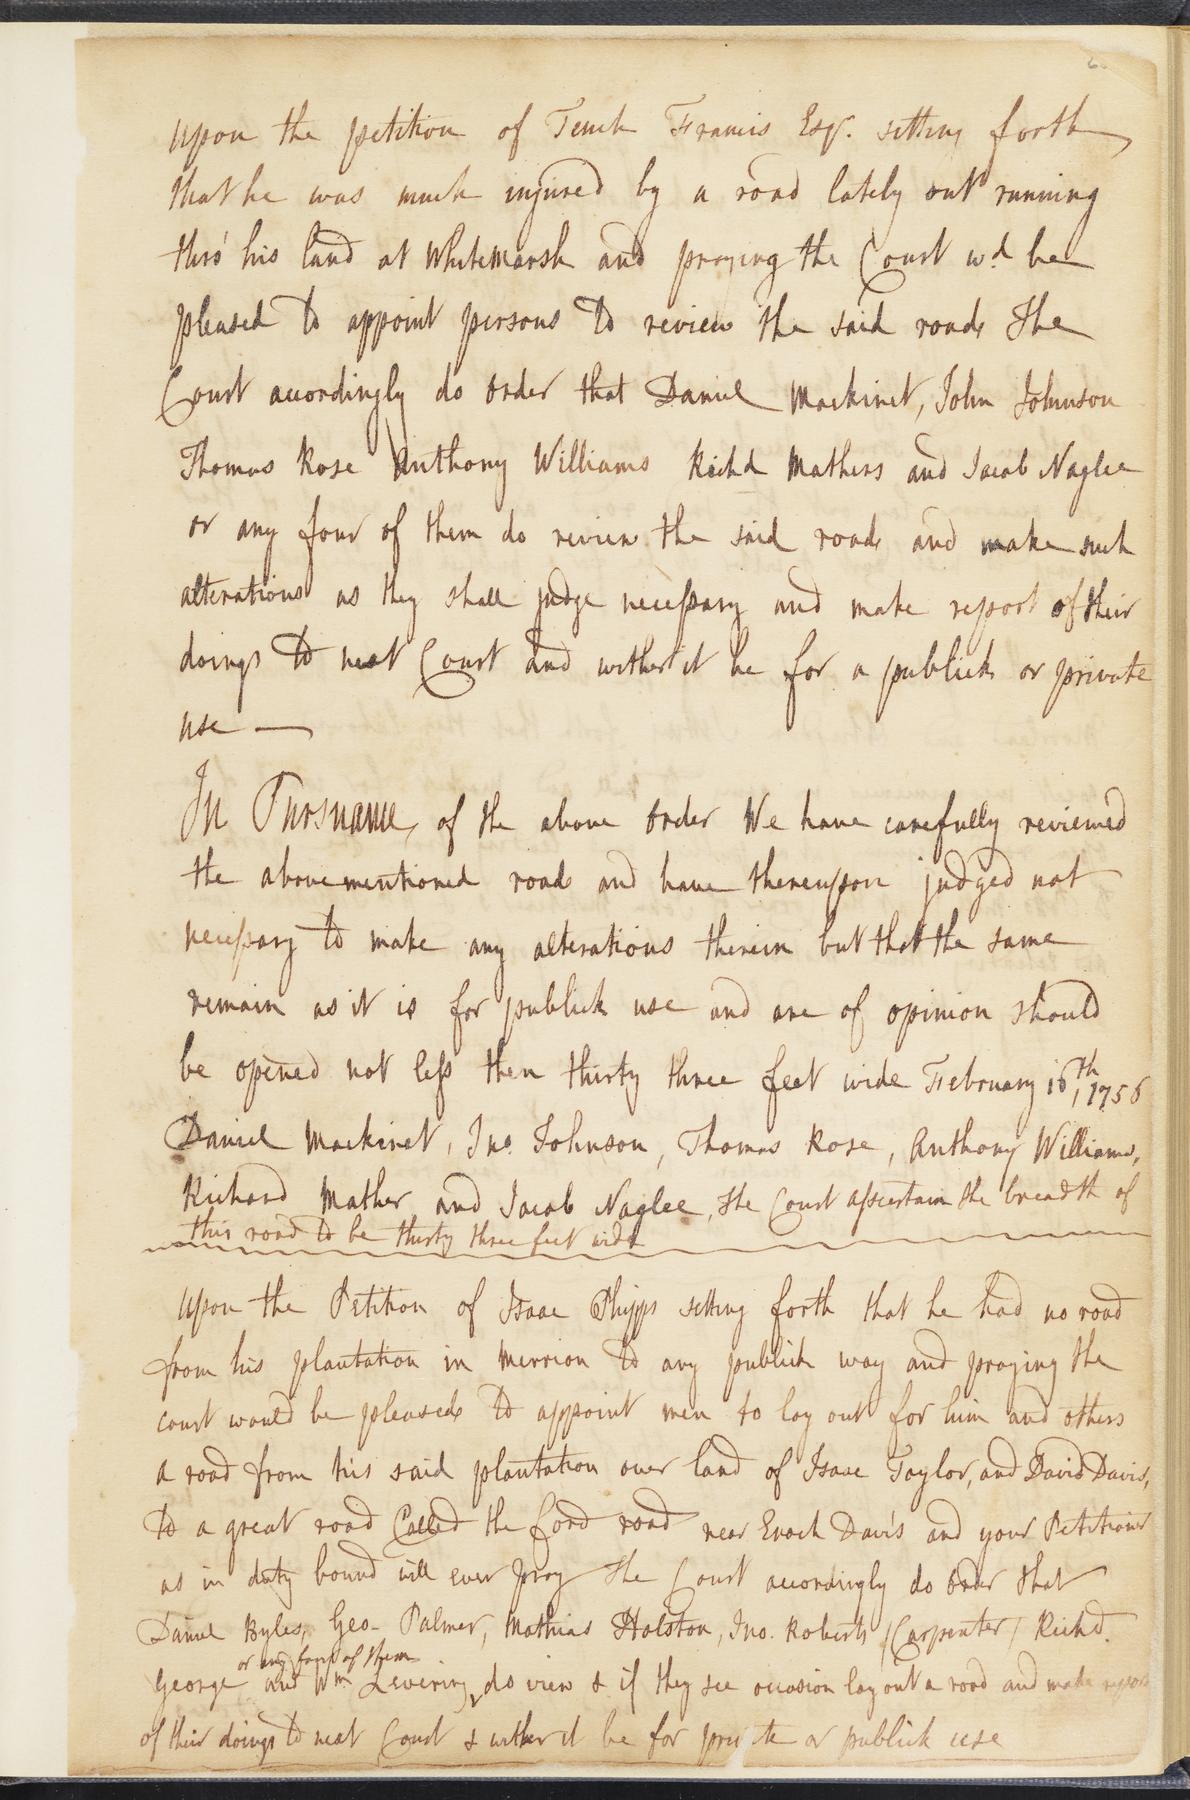 Upon the petition of Tench Francis Esqr. setting forth
that he was much injured by a road lately out running
thro' his land at Whitemarsh and praying the Court wd. be
pleased to appoint persons to review the said road, the
Court accordingly do order that Daniel Mackinet, John Johnson
Thomas Rose Anthony Williams Richd Mathers and Jacob Naglee
or any four of them do review the said road, and make such
alterations as they shall judge necessary and make report of their
doings to next Court and wither it be for a publick or private
use —
In Pursuance, of the above order We have carefully reviewed
the abovementioned road and have thereupon judged not
necessary to make any alterations therein but that the same
remain as it is for publick use and are of opinion should
be opened not less then thirty three feet wide February 16th, 1756
Daniel Mackinet, Jno. Johnson, Thomas Rose, Anthony Williams,
Richard Mather and Jacob Naglee, the Court assertain the breadth of
this road to be thirty three feet wide
Upon the Petition of Isaac Phipps setting forth that he had no road
from his plantation in Merrion to any publick way and praying the
court would be pleased to appoint men to lay out for him and others
a road from his said plantation over land of Isaac Taylor, and David Davis,
to a great road Called the ford road near Enoch Davis and your Petitioner
as in duty bound will ever pray The Court accordingly do order that
Daniel Byles, Geo. Palmer, Mathias Holston, Jno. Roberts /Carpenter/ Richd.
or any four of them
George and Wm Levering, do view & if they see occasion lay out a road and make report
of their doings to next Court & wither it be for private or publick use